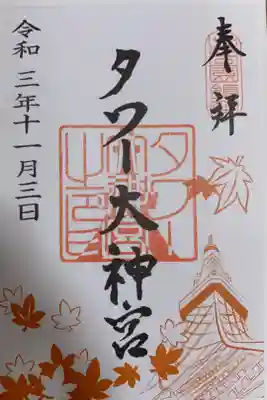 奉拝
タワー大神宮
令和三年十一月三日